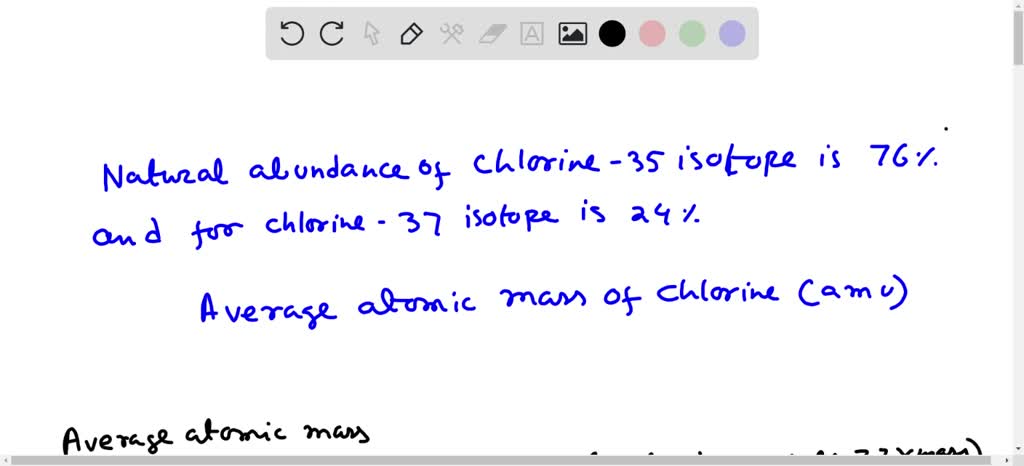 Natural abundance of chlorine-35 isotope is 76%.
and for chlorine-37 isotope is 24%
Average atomic mass of chlorine (amu)
Average atomic mass